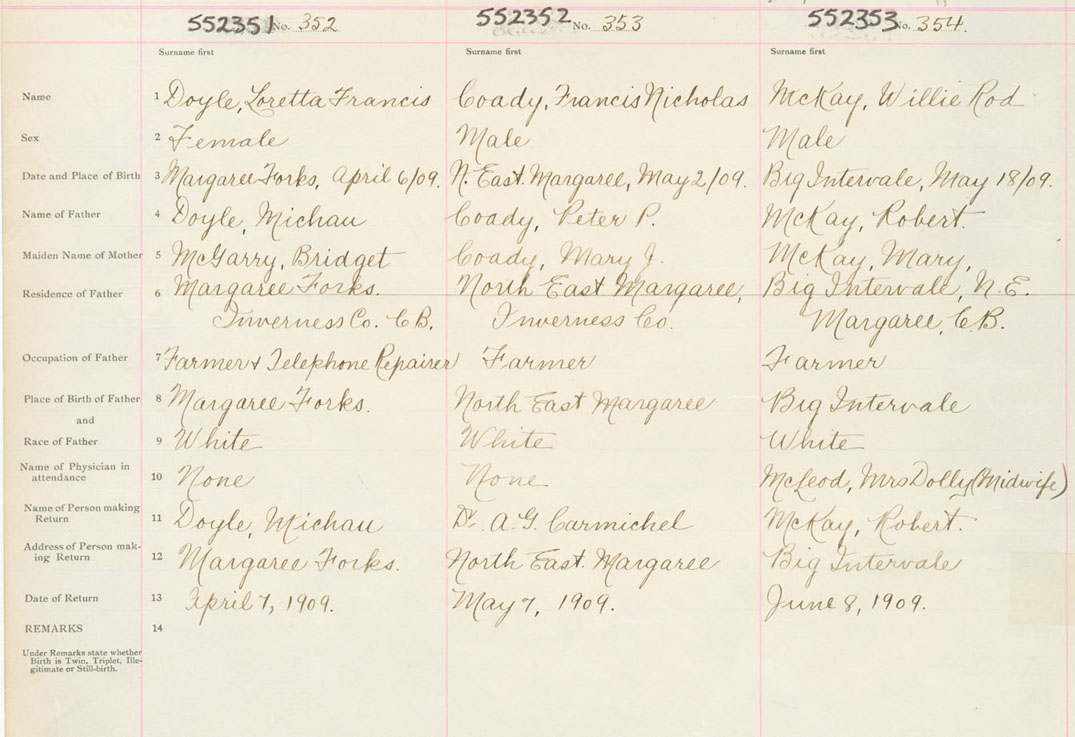 552351 No. 352 552352 No. 353 552353 No. 354.
Surname first Surname first Surname first
Name 1 Doyle, Loretta Francis Coady, Francis Nicholas McKay, Willie Rod
Sex 2 Female Male Male
Date and Place of Birth 3 Margaree Forks, April 6/09. N. East. Margaree, May 2/09. Big Intervale, May 18/09.
Name of Father 4 Doyle, Michau Coady, Peter P. McKay, Robert.
Maiden Name of Mother 5 McGarry, Bridget Coady, Mary J. McKay, Mary,
Residence of Father 6 Margaree Forks. North East Margaree, Big Intervale, N.E.
Inverness Co. C.B. Inverness Co. Margaree, C.B.
Occupation of Father 7 Farmer & Telephone Repairer Farmer Farmer
Place of Birth of Father 8 Margaree Forks. North East Margaree Big Intervale
and
Race of Father 9 White White White
Name of Physician in
attendance 10 None None McLeod, Mrs Dolly (Midwife)
Name of Person making
Return 11 Doyle, Michau Dr. A.G. Carmichel McKay, Robert.
Address of Person mak-
ing Return 12 Margaree Forks. North East. Margaree Big Intervale
Date of Return 13 April 7, 1909. May 7, 1909. June 8, 1909.
REMARKS 14
Under Remarks state whether
Birth is Twin, Triplet, Ille-
gitimate or Still-birth.